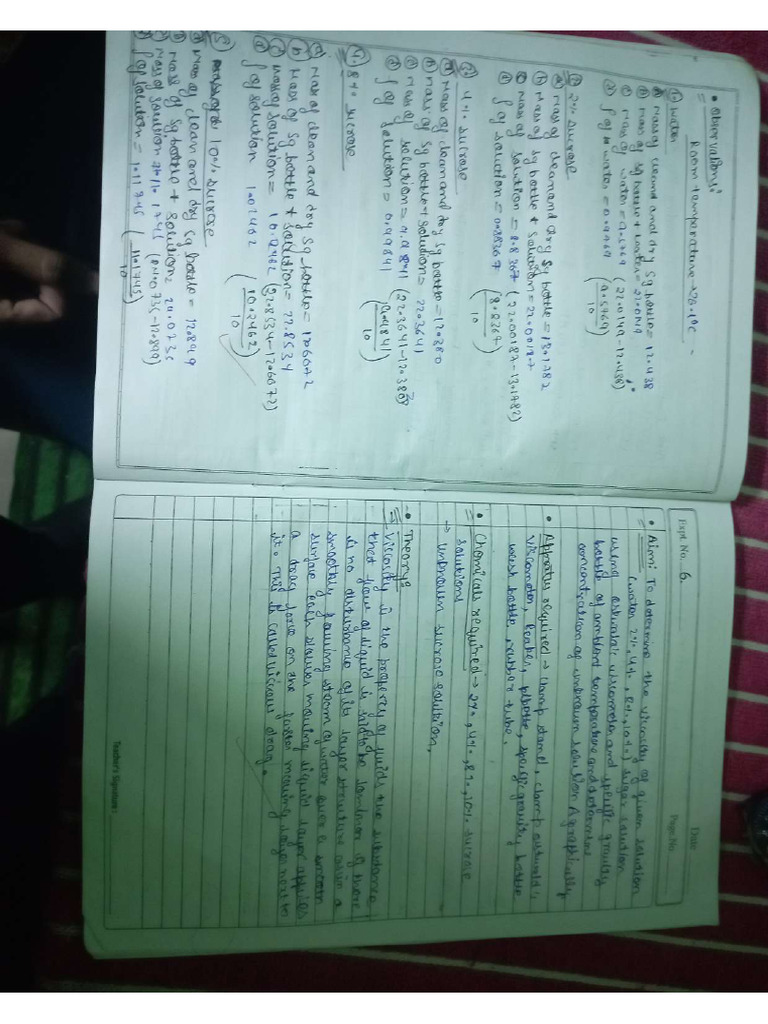 • Observations:
Room temperature → 26.1°C -
① Water
ⓐ Mass of cleand and dry Sg bottle = 12.438
ⓑ Mass of Sg bottle + water = 22.0149
ⓒ Mass of water = 9.5769 (22.0149 - 12.438)
ⓓ ρ of water = 0.95769 (9.5769/10)
② 2% sucrose
ⓐ Mass of clean and dry Sg bottle = 13.1782
ⓑ Mass of Sg bottle + solution = 22.00187
ⓒ Mass of solution = 8.8367 (22.00187 - 13.1782)
ⓓ ρ of solution = 0.88367 (8.8367/10)
③ 4% sucrose
ⓐ Mass of clean and dry Sg bottle = 12.380
ⓑ Mass of Sg bottle + solution = 22.3641
ⓒ Mass of solution = 9.9841 (22.3641 - 12.380)
ⓓ ρ of solution = 0.99841 (9.9841/10)
④ 8% sucrose
ⓐ Mass of clean and dry Sg bottle = 12.6072
ⓑ Mass of Sg bottle + solution = 22.8534
ⓒ Mass of solution = 10.2462 (22.8534 - 12.6072)
ⓓ ρ of solution 1.02462 (10.2462/10)
⑤ 10% sucrose
ⓐ Mass of clean and dry Sg bottle = 12.899
ⓑ Mass of Sg bottle + solution = 24.0735
ⓒ Mass of solution 11.1745 (24.0735 - 12.899)
ⓓ ρ of solution = 1.11745 (11.1745/10)
Expt. No. 6.
Date
Page No.
• Aim: To determine the viscosity of given solution
(water 2%, 4%, 8%, 10%) sugar solution
using ostwald's viscometer and specific gravity
bottle at ambient temperature and determine
concentration of unknown solution A graphically
• Appratus required → clamp stand, clamp ostwald's
viscometer, beaker, pipette, specific gravity bottle
wash bottle, rubber tube.
• Chemicals required → 2%, 4%, 8%, 10% sucrose
solutions
→ unknown sucrose solution.
• Theory:
⇒ Viscosity is the property of fluids the substance
that flow of liquid is said to be laminar if there
is no disturbance of its layer structure as in a
smoothly flowing steam of water over a smooth
surface each slower moving liquid layer applies
a drag force on the faster moving layer next to
it. This is called viscous drag.
Teacher's Signature :